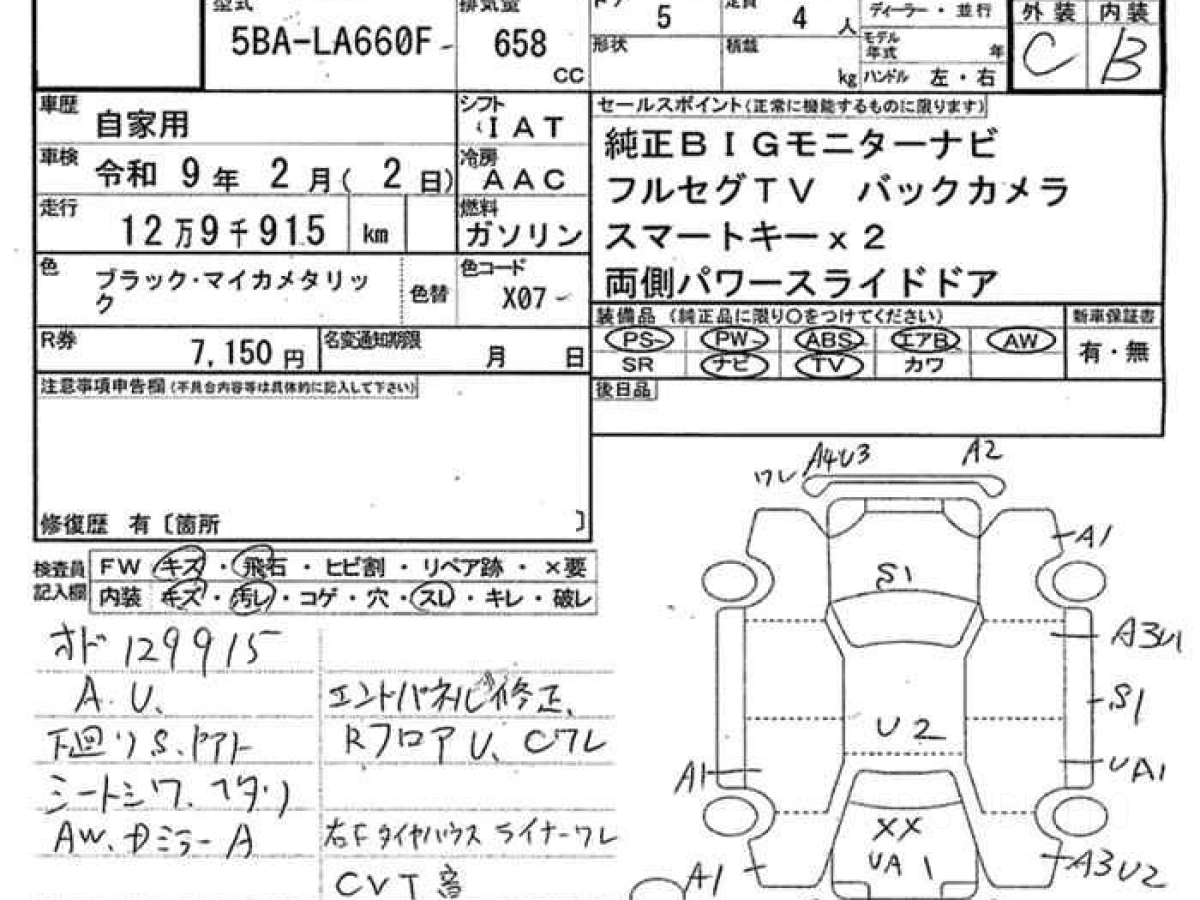 型式 排気量 ドア 定員 ディーラー・並行 外装 内装
5BA-LA660F 658 CC 5 4 人
形状 積載 kg モデル年式 年
ハンドル 左・右 C B
車歴 自家用 シフト IAT
車検 令和 9年 2月( 2日) 冷房 AAC
走行 12万9千915 km 燃料 ガソリン
色 ブラック・マイカメタリック 色替 色コード X07
R券 7,150円 名変通知期限 月 日
注意事項申告欄(不具合内容等は具体的に記入して下さい)
修復歴 有〔箇所 〕
セールスポイント(正常に機能するものに限ります)
純正BIGモニターナビ
フルセグTV バックカメラ
スマートキーx2
両側パワースライドドア
装備品 (純正品に限り〇をつけてください) 新車保証書
PS PW ABS エアB AW 有・無
SR ナビ TV カワ
後日品
検査員記入欄
FW キズ・飛石・ヒビ割・リペア跡・×要
内装 キズ・汚レ・コゲ・穴・スレ・キレ・破レ
オド 129915
A.U.
下廻りS.
シートシワ.
AW.ドミラーA
エンドパネル修正.
RフロアU、Cワレ
右Fタイヤハウス ライナーワレ
CVT音
ワレ A4U3 A2
A1
S1
A3U1
S1
U2
A1 UA1
XX
UA1
A1 A3U2